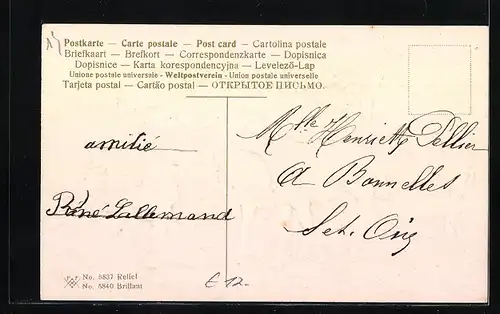 Postkarte — Carte postale — Post card — Cartolina postale
Briefkaart — Brefkort — Correspondenzkarte — Dopisnica
Dopisnice — Karta korespondencyjna — Levelező-Lap
Unione postale universale - Weltpostverein - Union postale universelle
Tarjeta postal — Cartão postal — ОТКРЫТОЕ ПИСЬМО.
amitié
René Lallemand
Melle Henriette Pellier
A Bonnelles
Set. Oise
No. 5837 Relief
No. 5840 Brillant
E 12.-